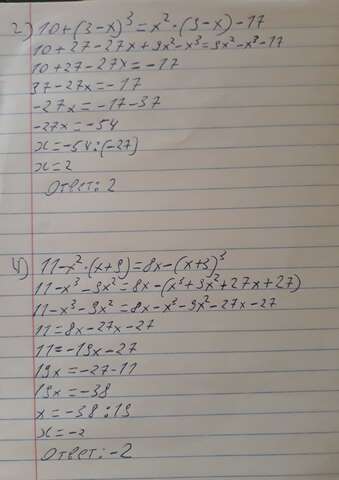 2) 10+(3-x)³=x²·(9-x)-17
10+27-27x+9x²-x³=9x²-x³-17
10+27-27x=-17
37-27x=-17
-27x=-17-37
-27x=-54
x=-54:(-27)
x=2
Ответ: 2
4) 11-x²·(x+9)=8x-(x+3)³
11-x³-9x²=8x-(x³+9x²+27x+27)
11-x³-9x²=8x-x³-9x²-27x-27
11=8x-27x-27
11=-19x-27
19x=-27-11
19x=-38
x=-38:19
x=-2
Ответ: -2